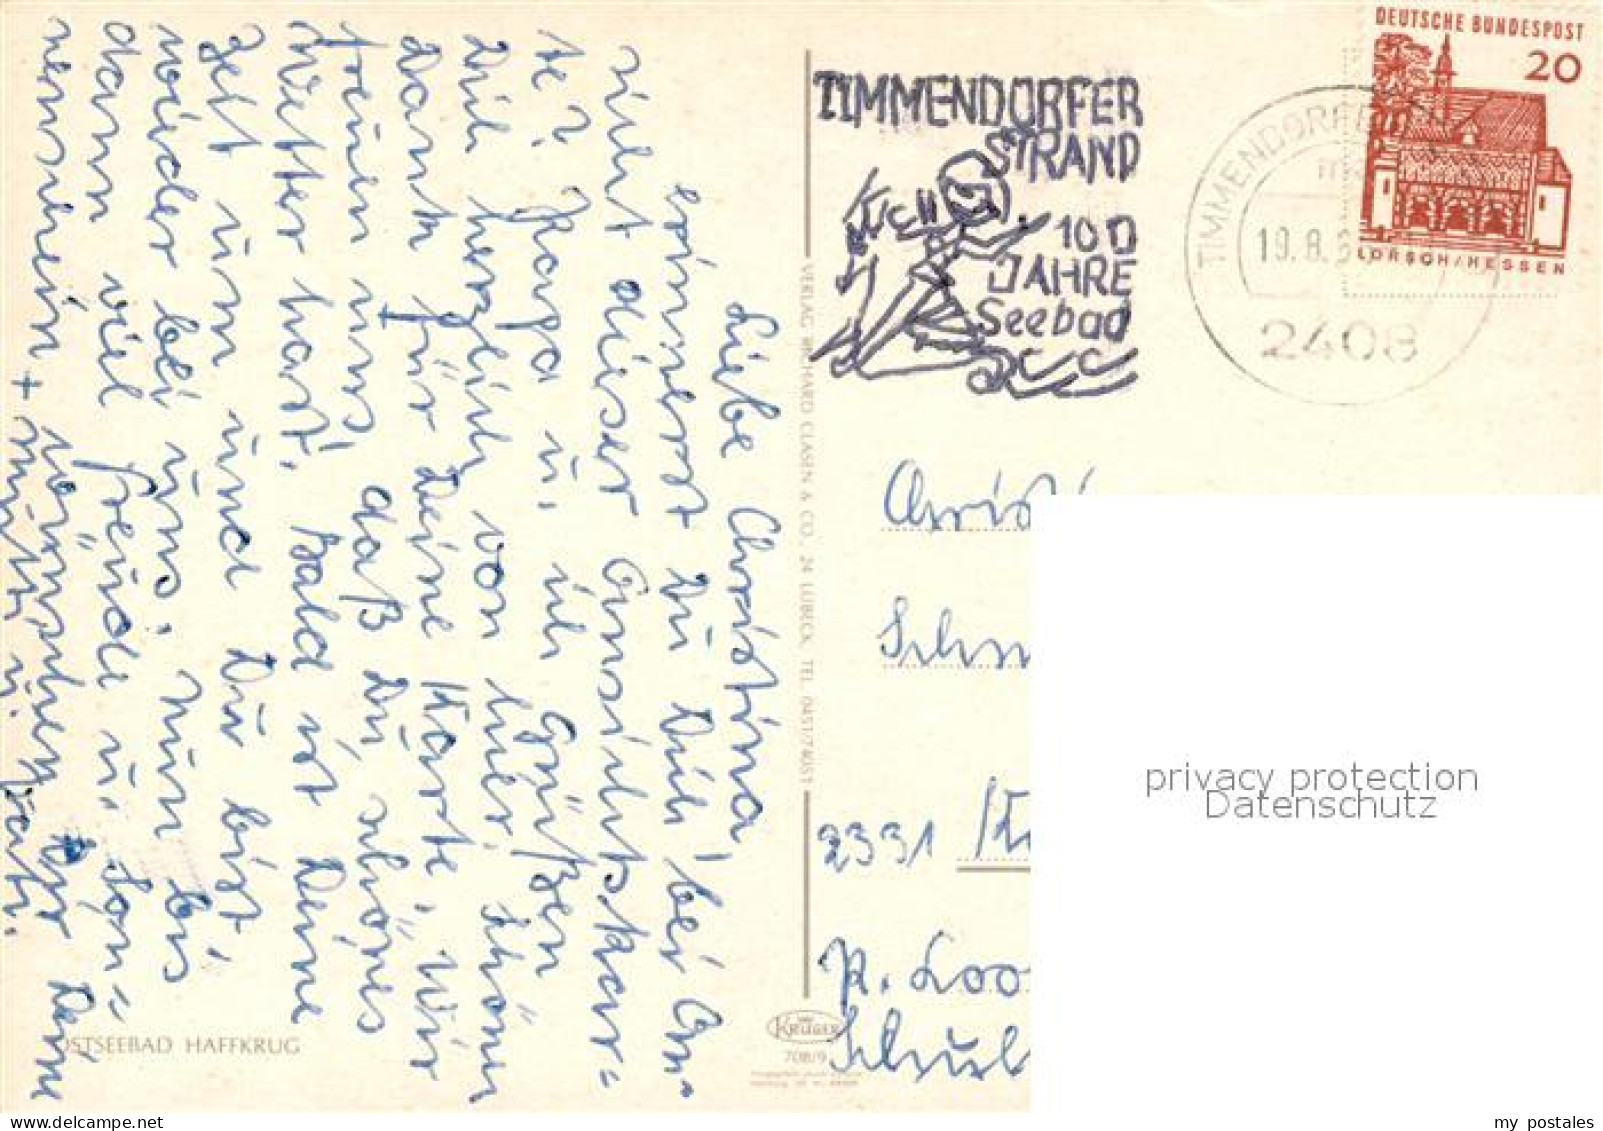 Liebe Christina,
erinnerst Du Dich bei An-
sicht dieser Ansichtskar=
te? Papa u. ich Grüßen
Dich herzlich von hier. Schönen
Dank für Deine Karte, Wir
freuen uns, daß Du, schönes
Wetter hast. Bald ist Deine
Zeit um und Du bist,
wieder bei uns. Nun bis
dann viel Freude u. Son=
nenschein + wünschen Dir Deine
Mutti u. Vati.
OSTSEEBAD HAFFKRUG
VERLAG RICHARD CLASEN & CO., 24 LÜBECK, TEL. 0451/74051
KRÜGER
708/9
TIMMENDORFER
STRAND
100
JAHRE
Seebad
TIMMENDORFER
19.8.6
2408
DEUTSCHE BUNDESPOST
20
LORSCH/HESSEN
Christi
Schm
2331 K
p. Loo
Schul
privacy protection
Datenschutz
my postales